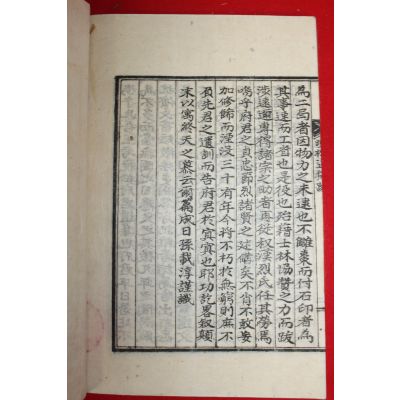 為二局者因物力之未逮也不雕棗而付石印者為
其事速而工省也是役也殆藉士林協贊之力而跋
涉遠邇專得諸宗之助者再從權漢烈氏任其勞焉
嗚呼府君之貞忠節烈諸賢之述備矣不肖不敢妄
加修飾而湮没三十有年今將不朽於無窮則庶不
負先君之遺訓而告府君於冥冥也耶功訖畧叙顛
末以寓終天之慕云爾篇成日孫載淳謹識